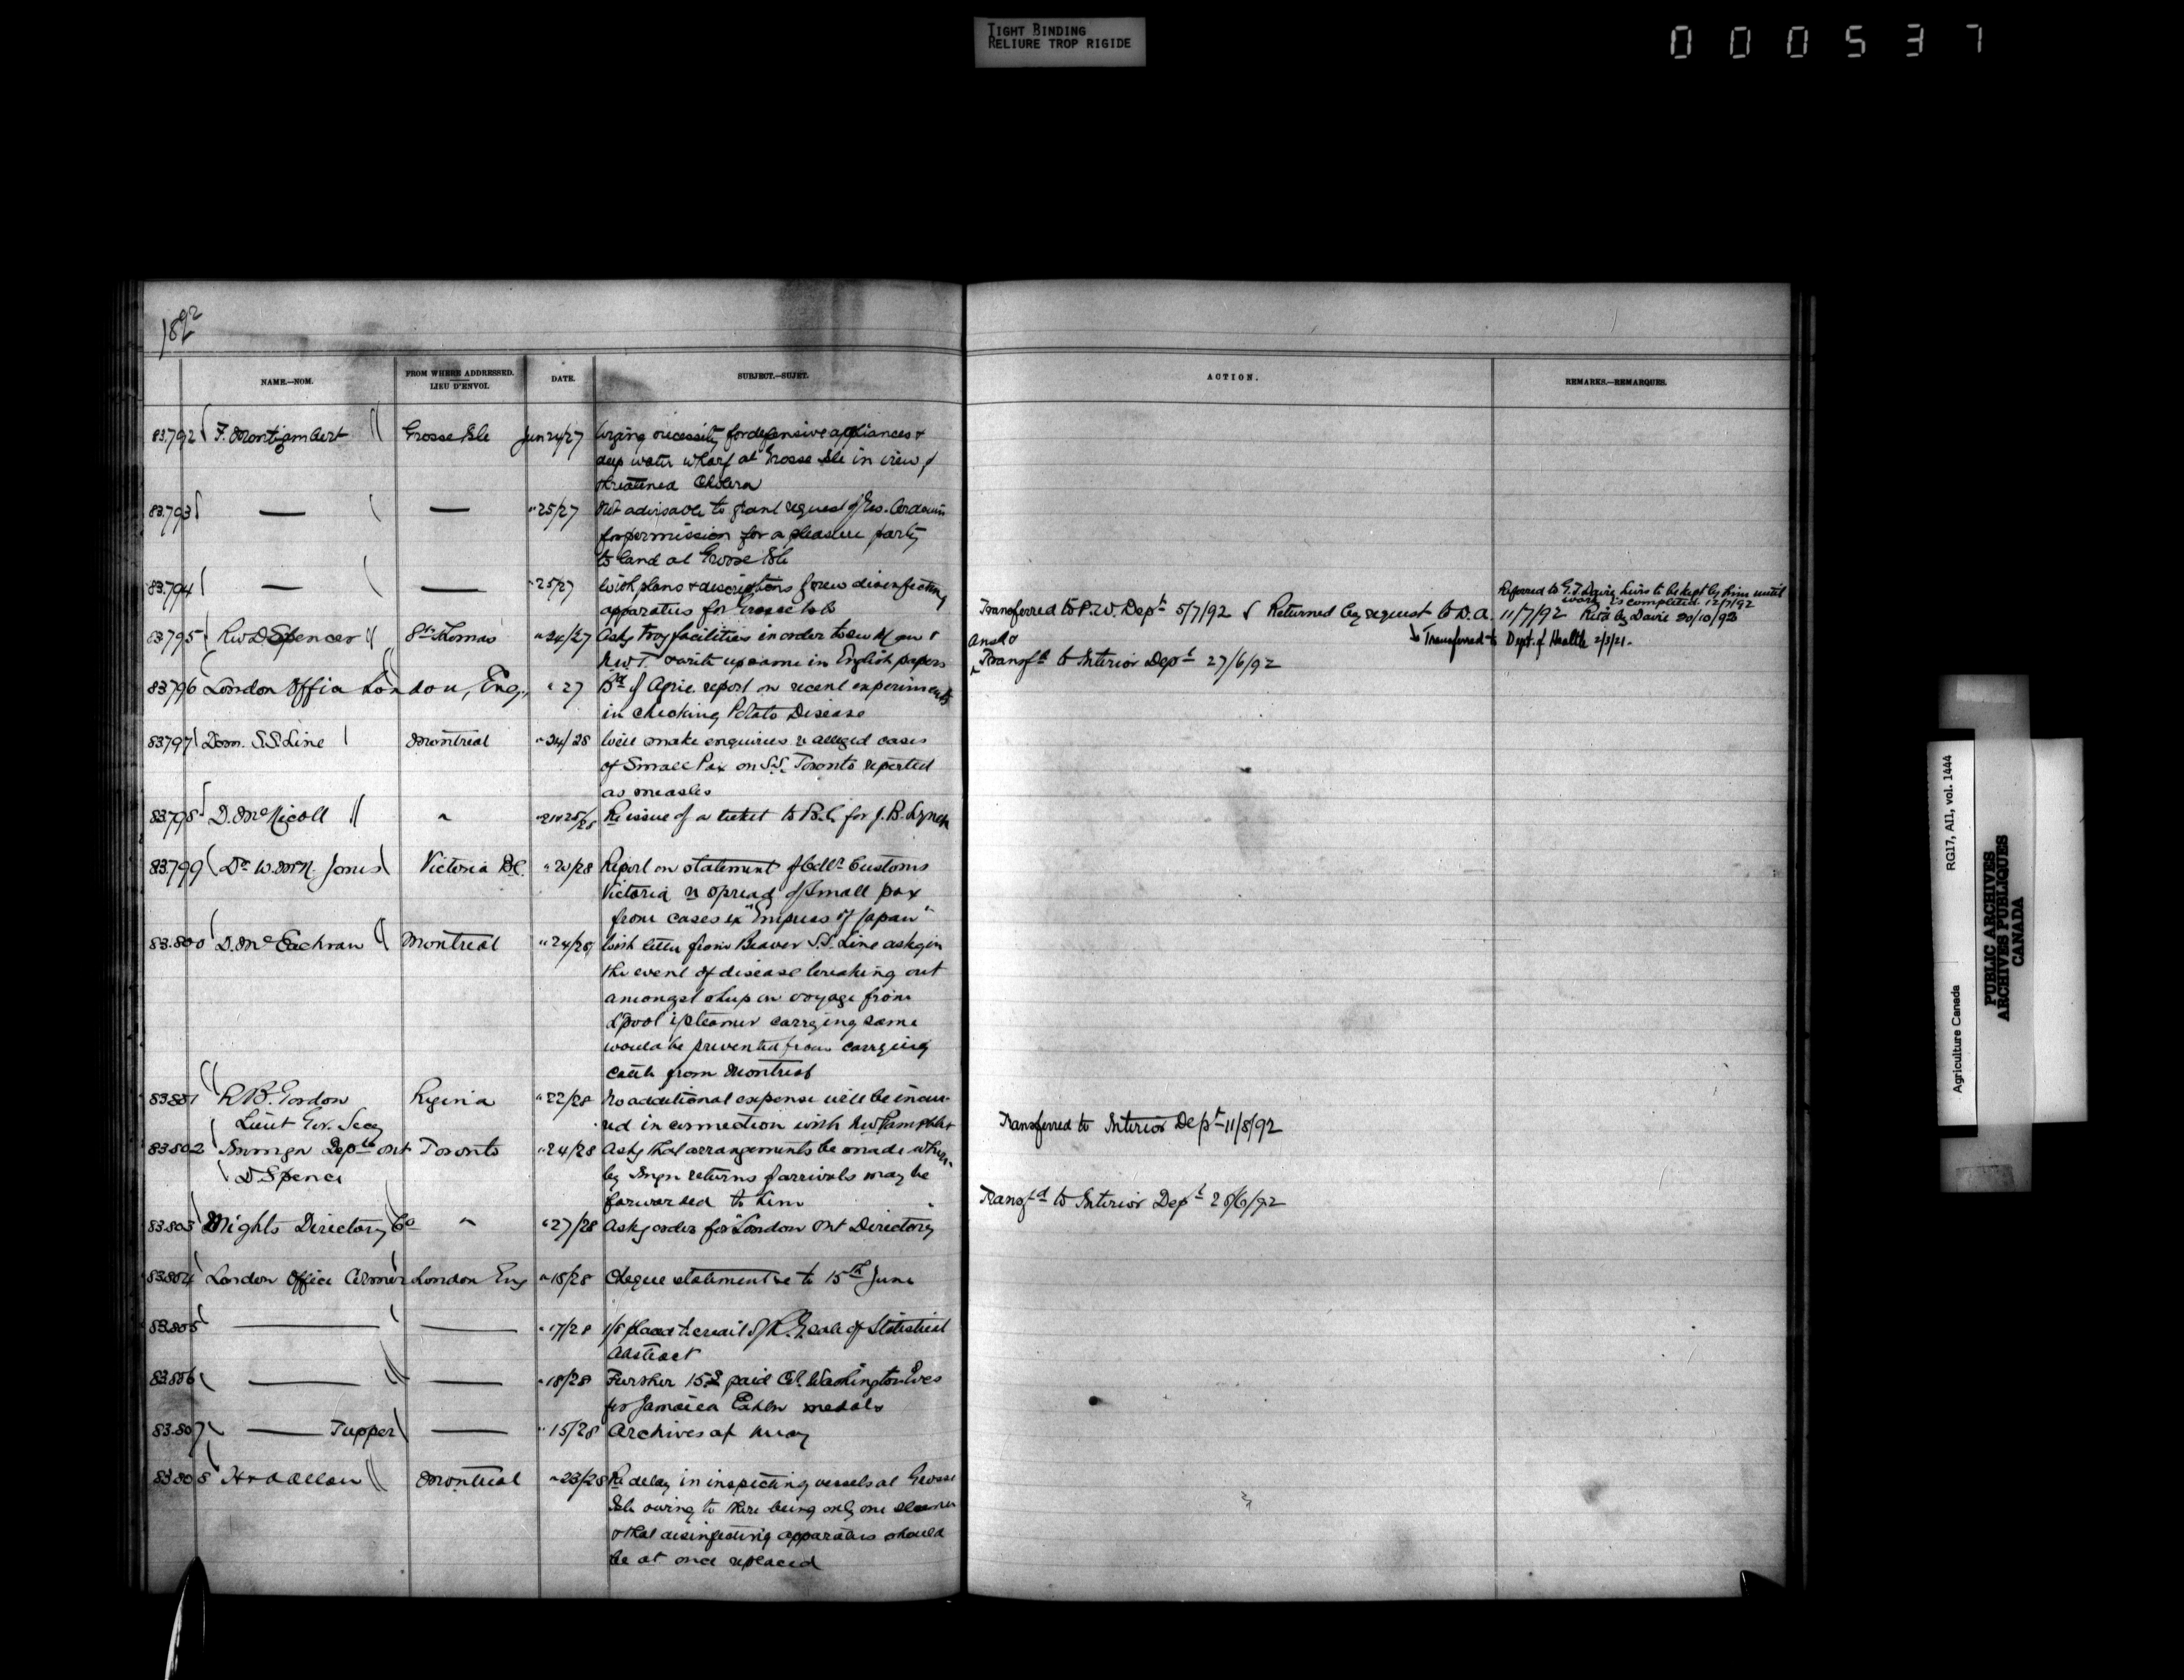 TIGHT BINDING
RELIURE TROP RIGIDE
000537
1892
NAME.—NOM.
FROM WHERE ADDRESSED.
LIEU D'ENVOI.
DATE.
SUBJECT.—SUJET.
ACTION.
REMARKS.—REMARQUES.
83.792 F. Montizambert Grosse Isle Jun 24/27 Urging necessity for defensive appliances &
deep water wharf at Grosse Isle in view of
threatened Cholera
83.793 — — " 25/27 Not advisable to grant request of
for permission for a pleasure party
to land at Grosse Isle
83.794 — — " 25/27 With plans & descriptions of new disinfecting
apparatus for Grosse Isle
Transferred to P.W. Dept 5/7/92 & Returned by request to D.A. 11/7/92
Referred to G.T. Davie to be kept by him until
work is completed. 12/7/92
Retd by Davie 20/10/92
Transferred to Dept. of Health 2/3/21.
83.795 Rev D Spencer St. Thomas " 24/27 Asks facilities in order to
N.W.T. & write up same in English papers
Ansd &
Transfd to Interior Dept 27/6/92
83.796 London Office London, Eng. " 27 Bd of Agric. report on recent experiments
in checking Potato Disease
83.797 Dom. S.S. Line Montreal " 24/28 Will make enquiries re alleged cases
of Small Pox on S.S. Toronto reported
as measles
83.798 D. McNicoll " Re issue of a ticket to B.C. for J.B. Lynch
83.799 Dr W. McN. Jones Victoria B.C. " 20/28 Report on statement of Collr Customs
Victoria re spread of Small pox
from cases ex "Empress of Japan"
83.800 D. McEachran Montreal " 24/28 With letter from Beaver S.S. Line askg in
the event of disease breaking out
amongst sheep on voyage from
L'pool if steamer carrying same
would be prevented from carrying
cattle from Montreal
83.801 R.B. Gordon Regina " 22/28 No additional expense will be incur-
Lieut Gov. Secy red in connection with NW Pamphlet
Transferred to Interior Dept 11/8/92
83.802 Immgn Dept Ont Toronto " 24/28 Asks that arrangements be made where-
D Spence by Imgn returns of arrivals may be
forwarded to him
Transfd to Interior Dept 28/6/92
83.803 Mights Directory Co " " 27/28 Asks order for London Ont Directory
83.804 London Office London Eng " 18/28 Cheque statement to 15th June
83.805 — — " 17/28 1/8 placed to credit of R.G. sale of Statistical
Abstract
83.806 — — " 18/28 Further 15 paid Col. Washington Eves
for Jamaica Exhbn medals
83.807 — Tupper — " 15/28 Archives a/c May
83.808 H & A Allan Montreal " 23/28 Re delay in inspecting vessels at Grosse
Isle owing to there being only one steamer
& that disinfecting apparatus should
be at once replaced
Agriculture Canada
RG17, AII, vol. 1444
PUBLIC ARCHIVES
ARCHIVES PUBLIQUES
CANADA